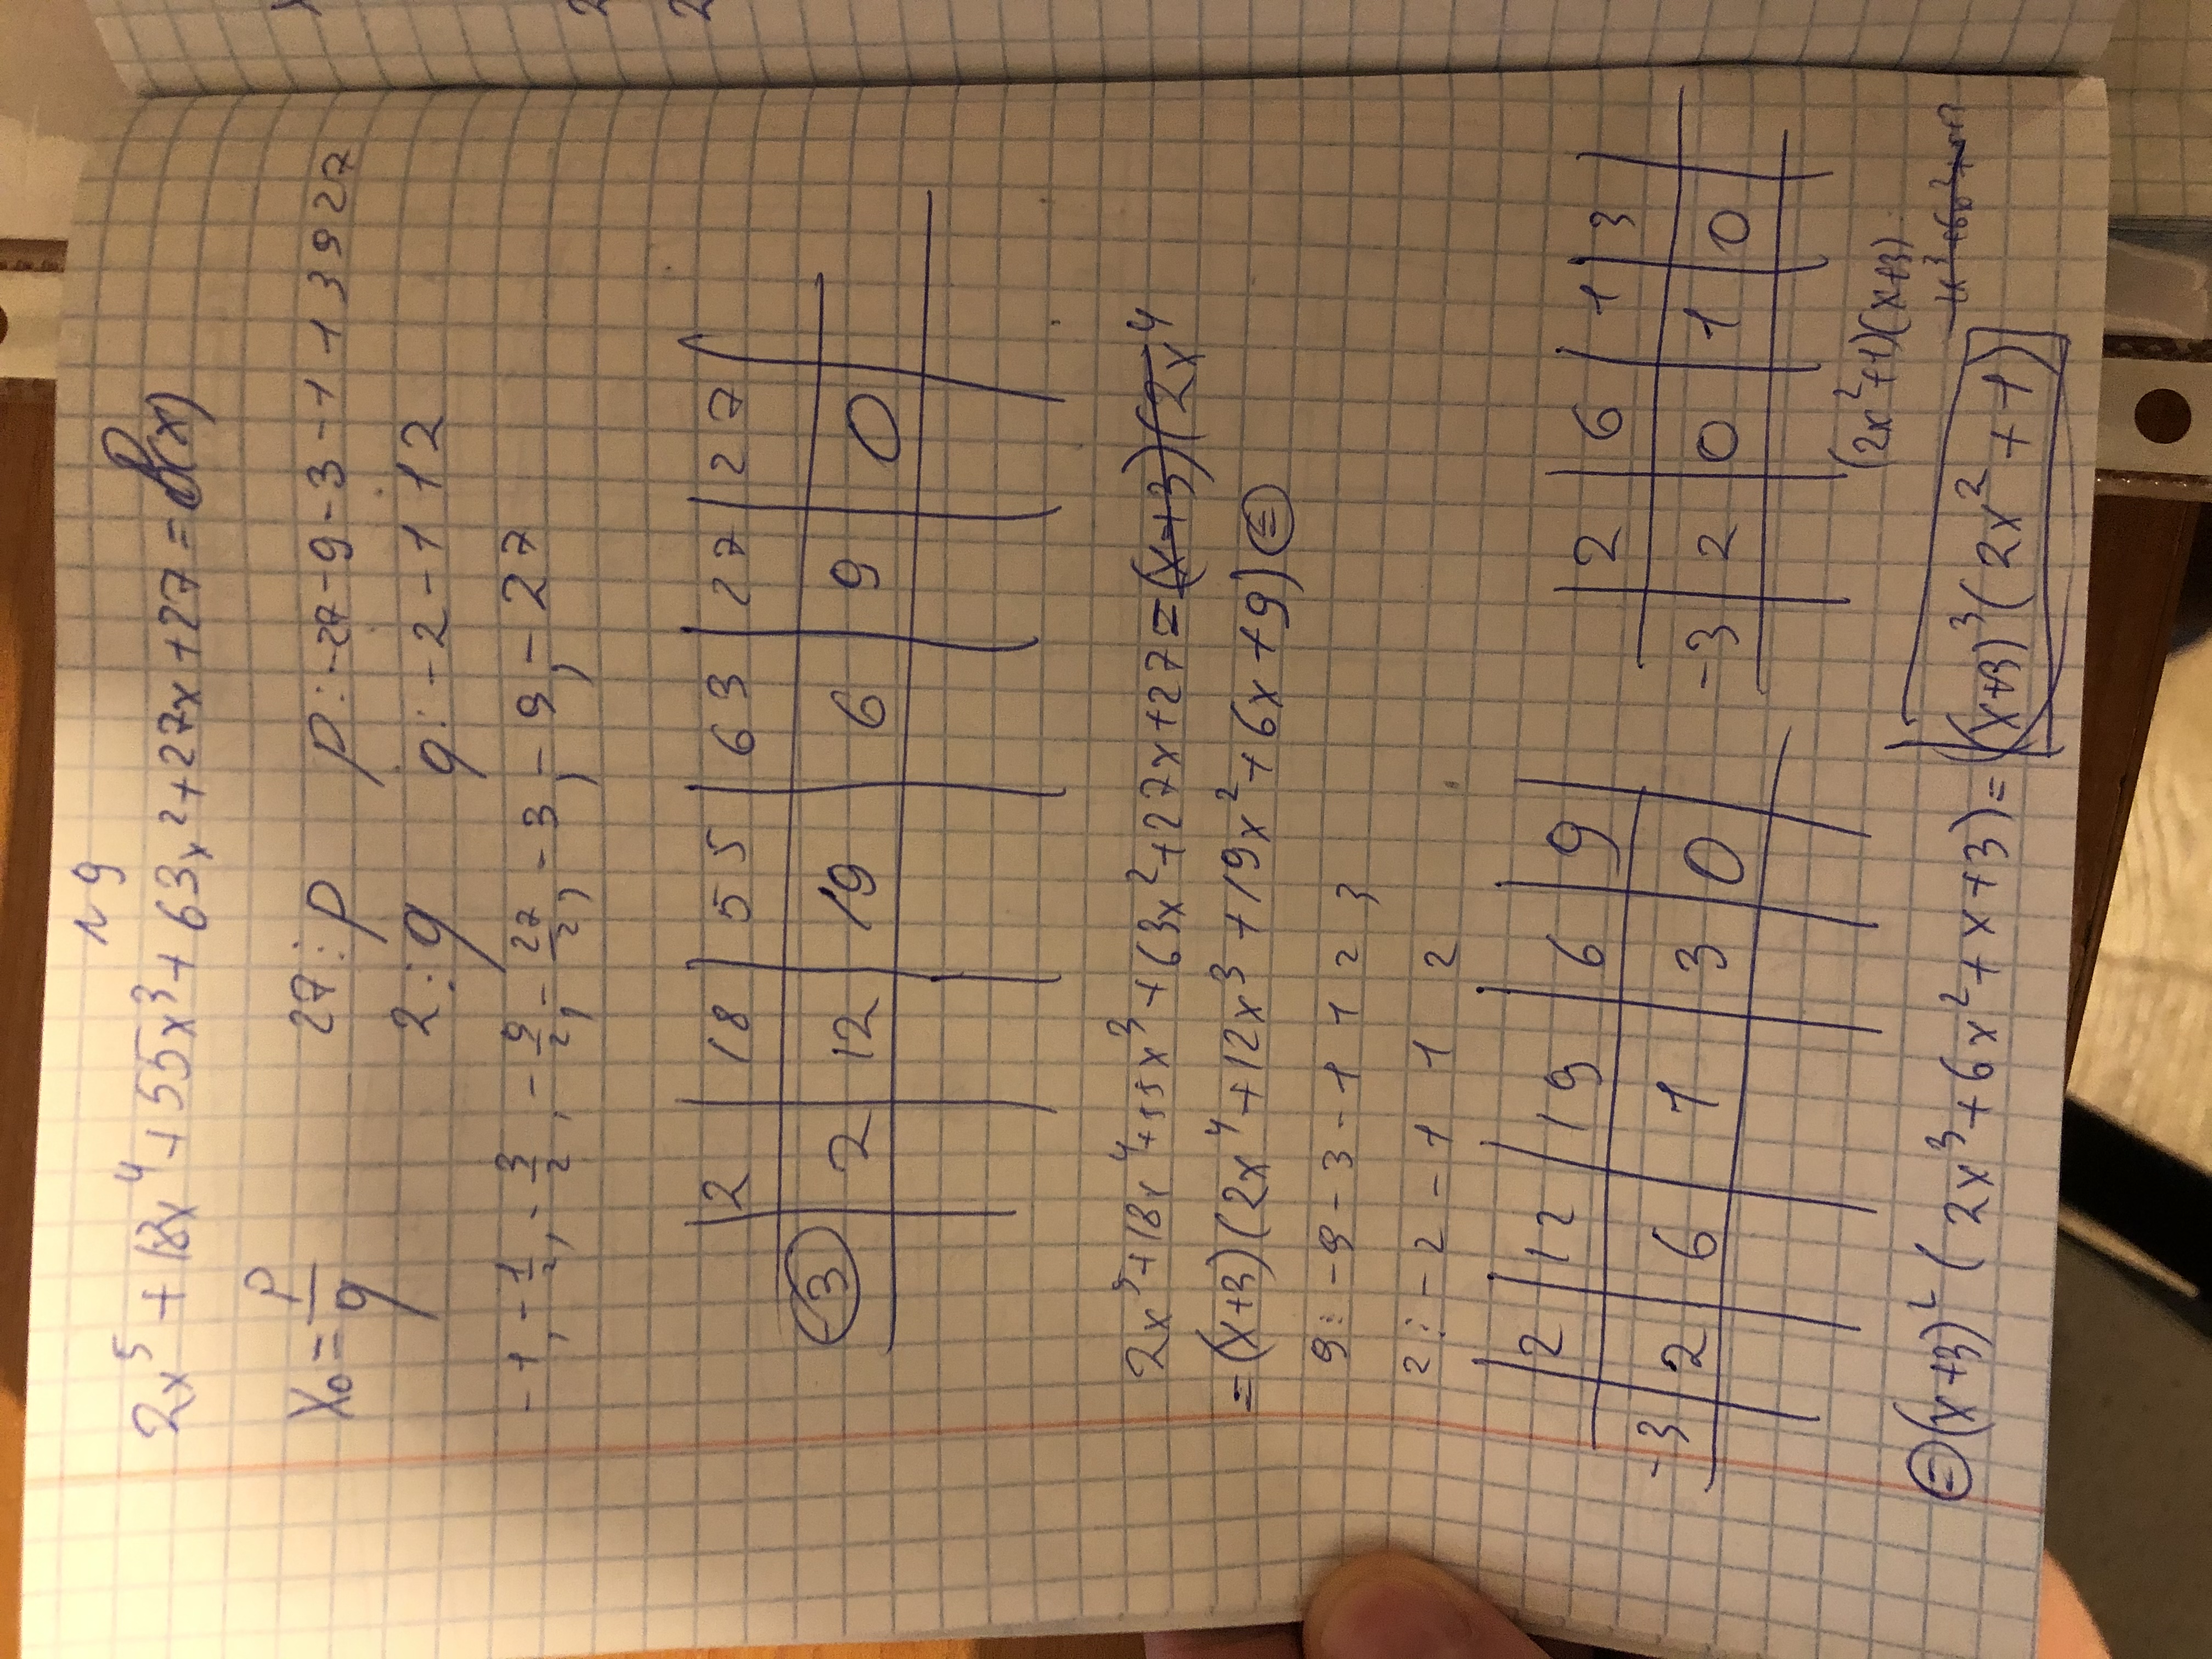 № 9
2x⁵ + 18x⁴ + 55x³ + 63x² + 27x + 27 = P(x)
x₀ = p/q    27 ⋮ p    p: -27 -9 -3 -1 1 3 9 27
2 ⋮ q    q: -2 -1 1 2
-1, -1/2, -3/2, -9/2, -27/2, -3, -9, -27
2 | 18 | 55 | 63 | 27 | 27
-3 | 2 | 12 | 19 | 6 | 9 | 0
2x⁵ + 18x⁴ + 55x³ + 63x² + 27x + 27 = (x+3)(2x⁴
= (x+3)(2x⁴ + 12x³ + 19x² + 6x + 9) =
9 ⋮ -9 -3 -1 1 2 3
2 ⋮ -2 -1 1 2
2 | 12 | 19 | 6 | 9
-3 | 2 | 6 | 1 | 3 | 0
2 | 6 | 1 | 3
-3 | 2 | 0 | 1 | 0
(2x²+1)(x+3)
= (x+3)² (2x³ + 6x² + x + 3) = (x+3)³ (2x² + 1)